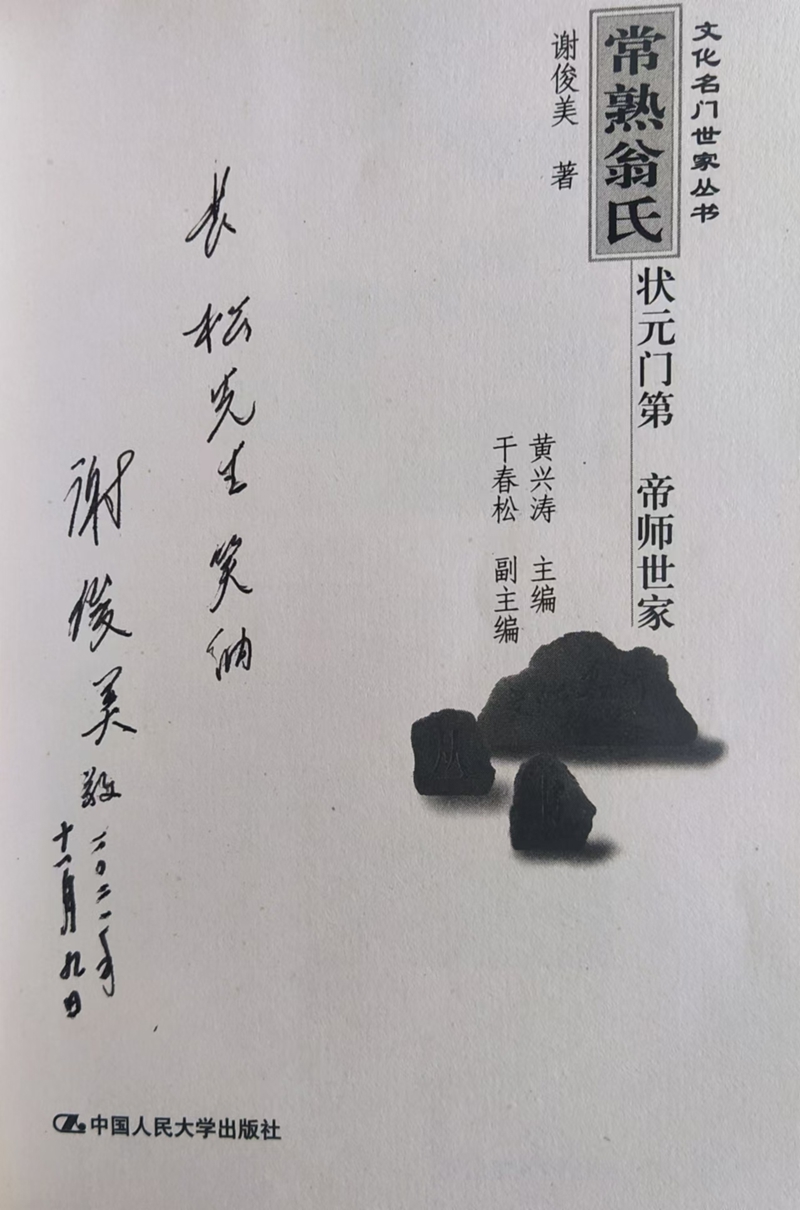 文化名门世家丛书
常熟翁氏
状元门第 帝师世家
谢俊美 著
黄兴涛 主编
干春松 副主编
长松先生笑纳
谢俊美敬
二〇二一年
十一月九日
中国人民大学出版社